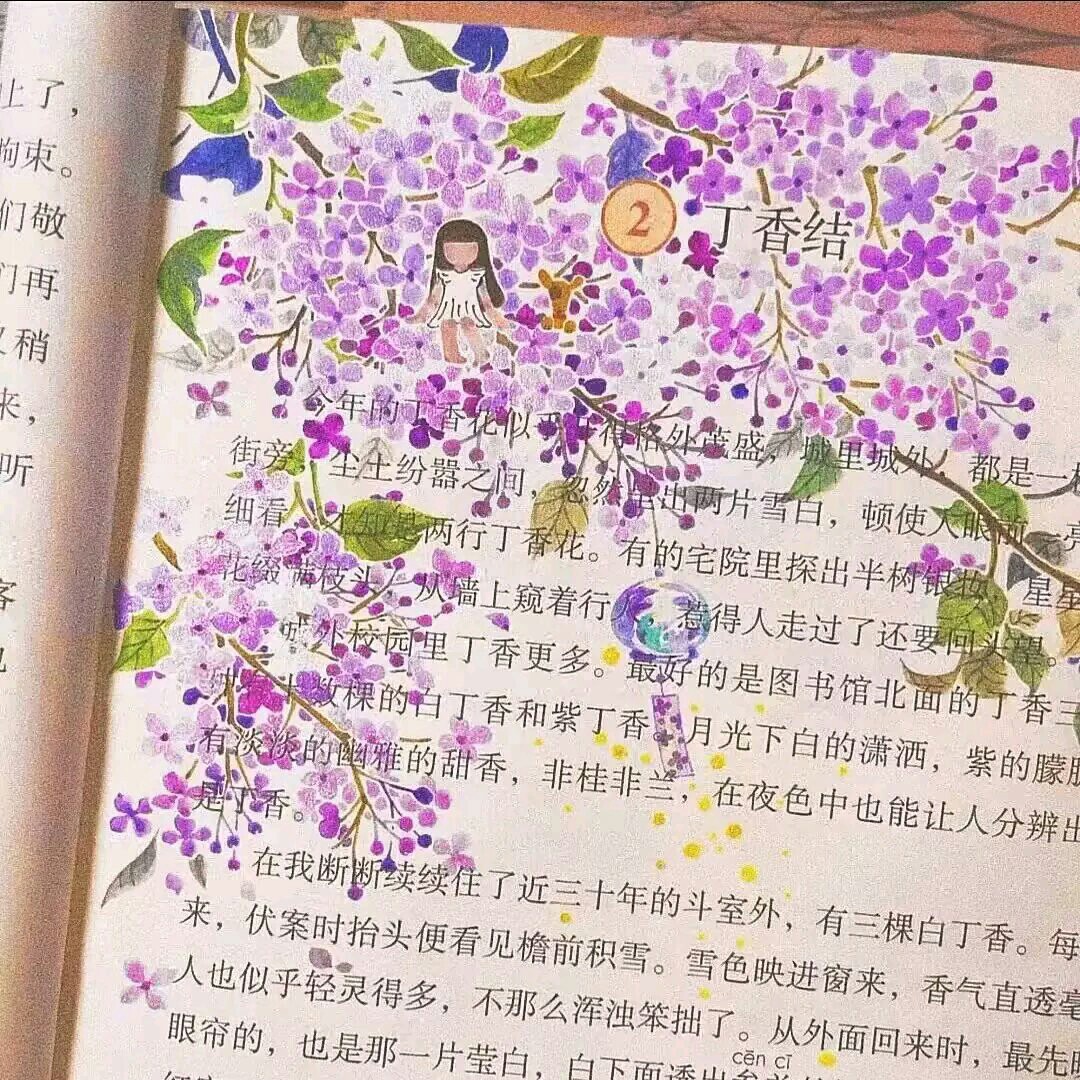 上了，
拘束。
们敬
们再
又稍
来，
听
客
2 丁香结
今年的丁香花似乎开得格外茂盛，城里城外，都是一样
街旁，尘土纷嚣之间，忽然呈出两片雪白，顿使人眼前一亮
细看，才知是两行丁香花。有的宅院里探出半树银妆，星星
花缀满枝头，从墙上窥着行人，惹得人走过了还要回头望。
城外校园里丁香更多。最好的是图书馆北面的丁香三
数棵的白丁香和紫丁香。月光下白的潇洒，紫的朦胧
有淡淡的幽雅的甜香，非桂非兰，在夜色中也能让人分辨出
是丁香。
在我断断续续住了近三十年的斗室外，有三棵白丁香。每
来，伏案时抬头便看见檐前积雪。雪色映进窗来，香气直透毫
人也似乎轻灵得多，不那么浑浊笨拙了。从外面回来时，最先映
cēn cī
眼帘的，也是那一片莹白，白下面透出参差的